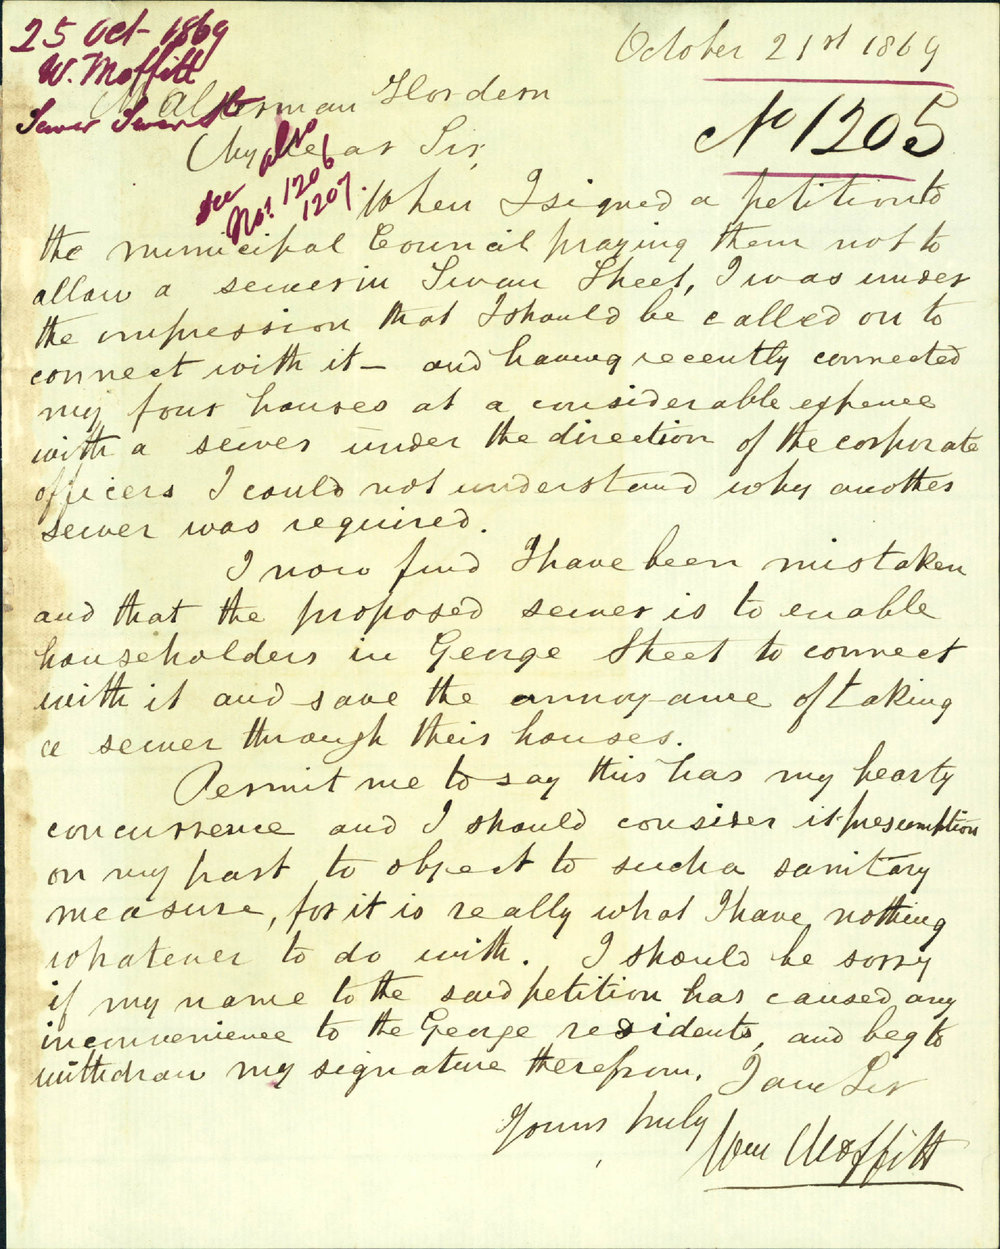 25 Oct - 1869
W. Moffitt
Sewer Swan St
see also
Nos. 1206
1207.
October 21st 1869
No 1205
Alderman Hordern
My dear Sir,
When I signed a petition to
the municipal Council praying them not to
allow a sewer in Swan Street, I was under
the impression that I should be called on to
connect with it — and having recently connected
my four houses at a considerable expence
with a sewer under the direction of the corporate
officers I could not understand why another
sewer was required.
I now find I have been mistaken
and that the proposed sewer is to enable
householders in George Street to connect
with it and save the annoyance of taking
a sewer through their houses.
Permit me to say this has my hearty
concurrence and I should consider it presumption
on my part to object to such a sanitary
measure, for it is really what I have nothing
whatever to do with. I should be sorry
if my name to the said petition has caused any
inconvenience to the George residents, and beg to
withdraw my signature therefrom. I am Sir
Yours truly
Wm Moffitt